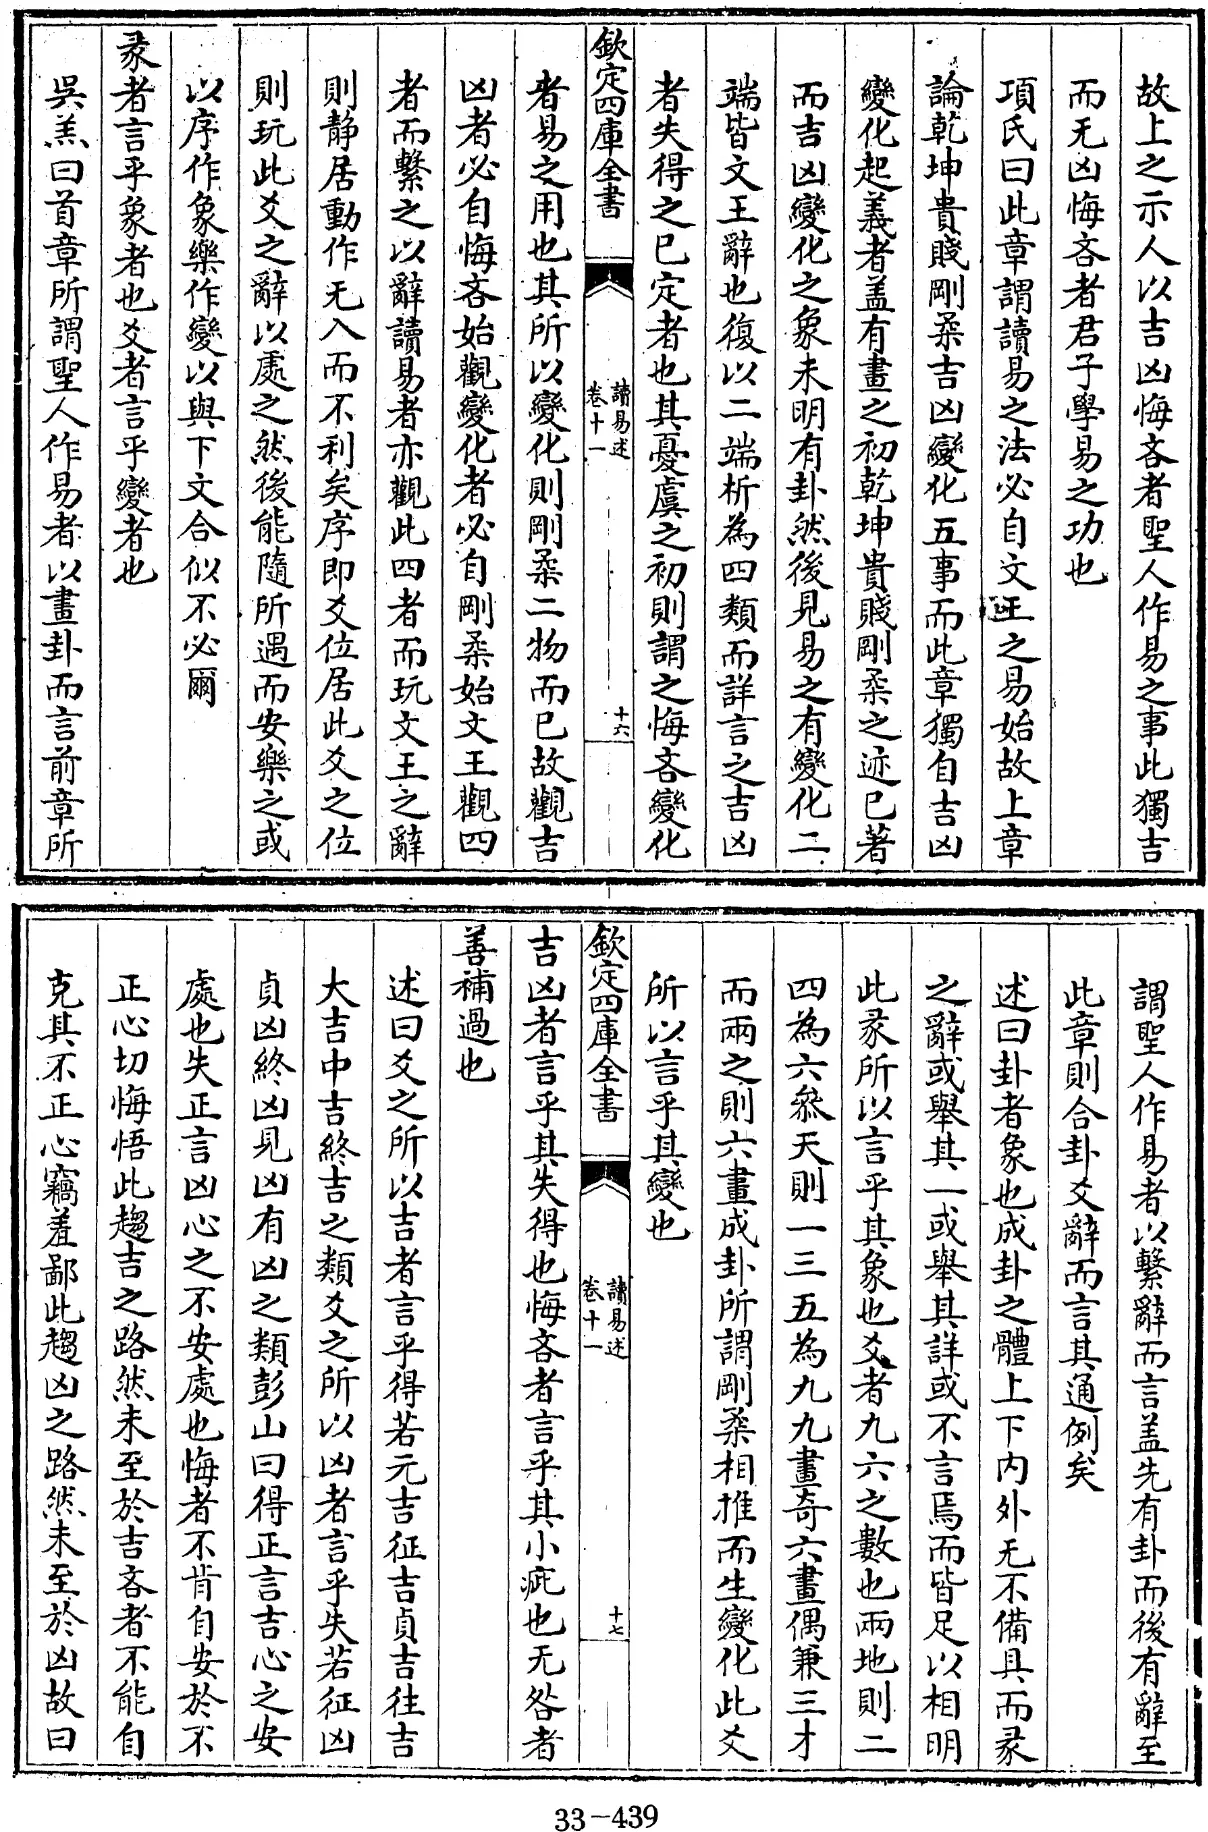 故上之示人以吉凶悔吝者聖人作易之事此獨吉
而无凶悔吝者君子學易之功也
項氏曰此章謂讀易之法必自文王之易始故上章
論乾坤貴賤剛柔吉凶變化五事而此章獨自吉凶
變化起義者盖有畫之初乾坤貴賤剛柔之迹已著
而吉凶變化之象未明有卦然後見易之有變化二
端皆文王辭也復以二端析為四類而詳言之吉凶
者失得之已定者也其憂虞之初則謂之悔吝變化
欽定四庫全書
讀易述
卷十一
十六
者易之用也其所以變化則剛柔二物而已故觀吉
凶者必自悔吝始觀變化者必自剛柔始文王觀四
者而繫之以辭讀易者亦觀此四者而玩文王之辭
則静居動作无入而不利矣序即爻位居此爻之位
則玩此爻之辭以處之然後能隨所遇而安樂之或
以序作象樂作變以與下文合似不必爾
彖者言乎象者也爻者言乎變者也
吳羔曰首章所謂聖人作易者以畫卦而言前章所
謂聖人作易者以繫辭而言盖先有卦而後有辭至
此章則合卦爻辭而言其通例矣
述曰卦者象也成卦之體上下内外无不備具而彖
之辭或舉其一或舉其詳或不言焉而皆足以相明
此彖所以言乎其象也爻者九六之數也兩地則二
四為六叅天則一三五為九九畫奇六畫偶兼三才
而兩之則六畫成卦所謂剛柔相推而生變化此爻
所以言乎其變也
欽定四庫全書
讀易述
卷十一
十七
吉凶者言乎其失得也悔吝者言乎其小疵也无咎者
善補過也
述曰爻之所以吉者言乎得若元吉征吉貞吉往吉
大吉中吉終吉之類爻之所以凶者言乎失若征凶
貞凶終凶見凶有凶之類彭山曰得正言吉心之安
處也失正言凶心之不安處也悔者不肯自安於不
正心切悔悟此趨吉之路然未至於吉吝者不能自
克其不正心竊羞鄙此趨凶之路然未至於凶故曰
33-439